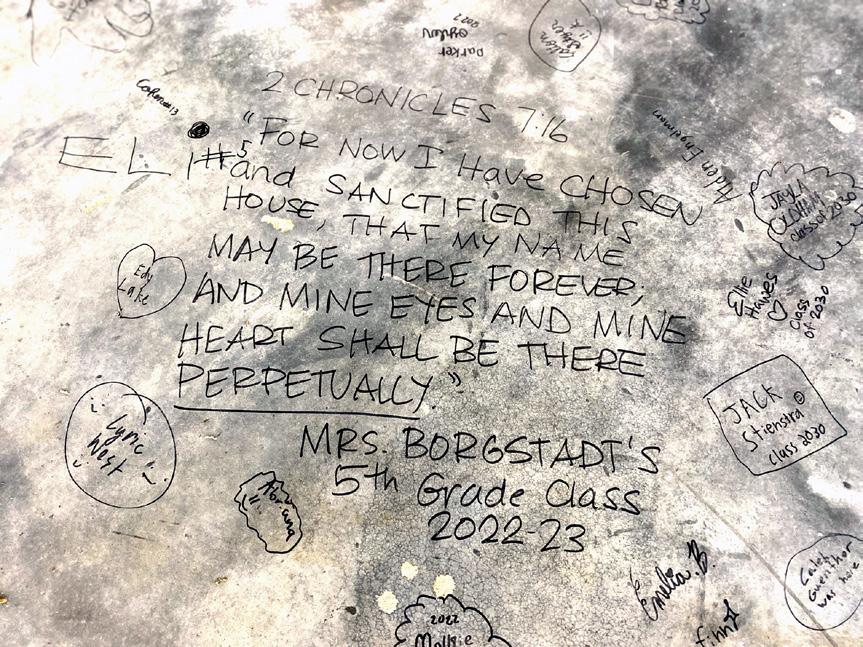 Parker
Oyler
2022
2 CHRONICLES 7:16
"FOR NOW I Have CHOSEN
and SANCTIFIED THIS
HOUSE, THAT MY NAME
MAY BE THERE FOREVER;
AND MINE EYES AND MINE
HEART SHALL BE THERE
PERPETUALLY"
MRS. BORGSTADT'S
5th Grade Class
2022-23
ELI #5
Edy
Lake
Lyric
West
Aiden
JAYLA
OLDHAM
class of 2030
Ellie
Hawes
Class
of 2030
JACK
Stienstra
class 2030
Emelia B.
finn
Caleb
Guenthor
was here
2022
Mollie